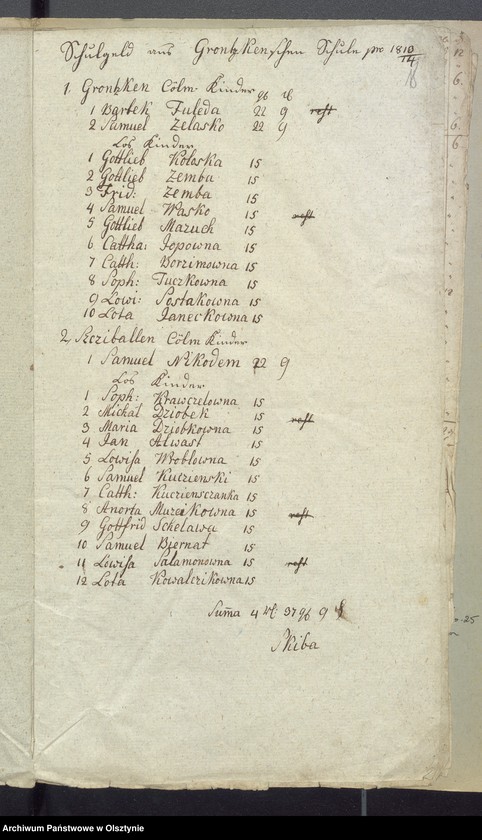 Schulgeld aus Grontzkenschen Schule pro 1810/14
1. Grontzken Cölm. Kinder
1 Bartek Fuleda 22 9 rest
2 Samuel Zelasko 22 9
Los Kinder
1 Gottlieb Koloska 15
2 Gottlieb Zemba 15
3 Frid: Zemba 15
4 Samuel Wasko 15 rest
5 Gottlieb Mazuch 15
6 Cattha: Jopowna 15
7 Catth: Borzimowna 15
8 Soph: Tuczkowna 15
9 Lowi: Postakowna 15
10 Lota Janeckowna 15
2, Scziballen Cölm Kinder
1 Samuel Nikodem 22 9
Los Kinder
1 Soph: Krawczelowna 15
2 Michal Dziobek 15 rest
3 Maria Dziobkowna 15
4 Jan Alwast 15
5 Lowisa Wroblowna 15
6 Samuel Kuczienski 15
7 Catth: Kuczienschanka 15
8 Anorta Mureikowna 15 rest
9 Gottfrid Schelawa 15
10 Samuel Biernat 15
11 Lowisa Salamonowna 15 rest
12 Lota Kowalczikowna 15
Suma 4 37 9
Skiba
Archiwum Państwowe w Olsztynie